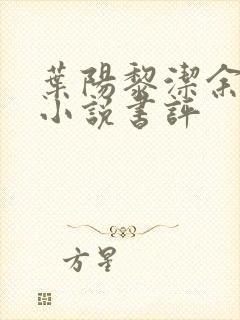 葉陽黎潔余
小說書評
方星